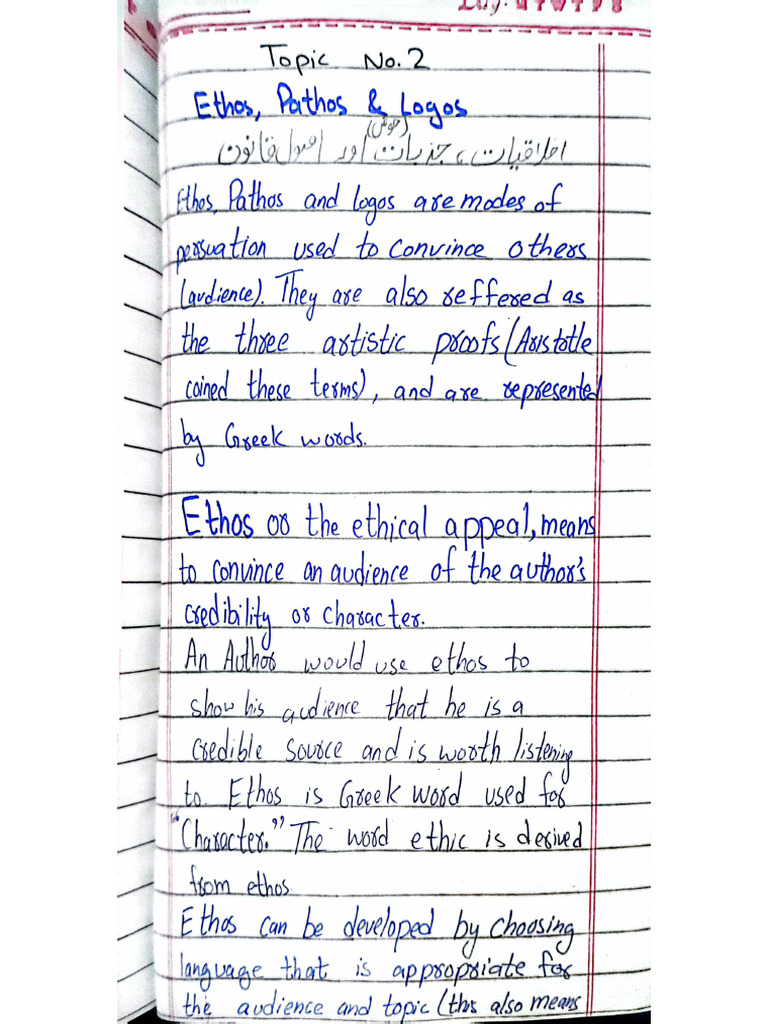 Topic No. 2
Ethos, Pathos & Logos
(جوش)
اخلاقیات، جذبات اور اصول قانون
Ethos, Pathos and logos are modes of
persuation used to convince others
(audience). They are also reffered as
the three artistic proofs (Aristotle
coined these terms), and are represented
by Greek words.
Ethos or the ethical appeal, means
to convince an audience of the author's
credibility or character.
An Author would use ethos to
show his audience that he is a
credible source and is worth listening
to. Ethos is Greek word used for
"Character." The word ethic is derived
from ethos.
Ethos can be developed by choosing
language that is appropriate for
the audience and topic (this also means